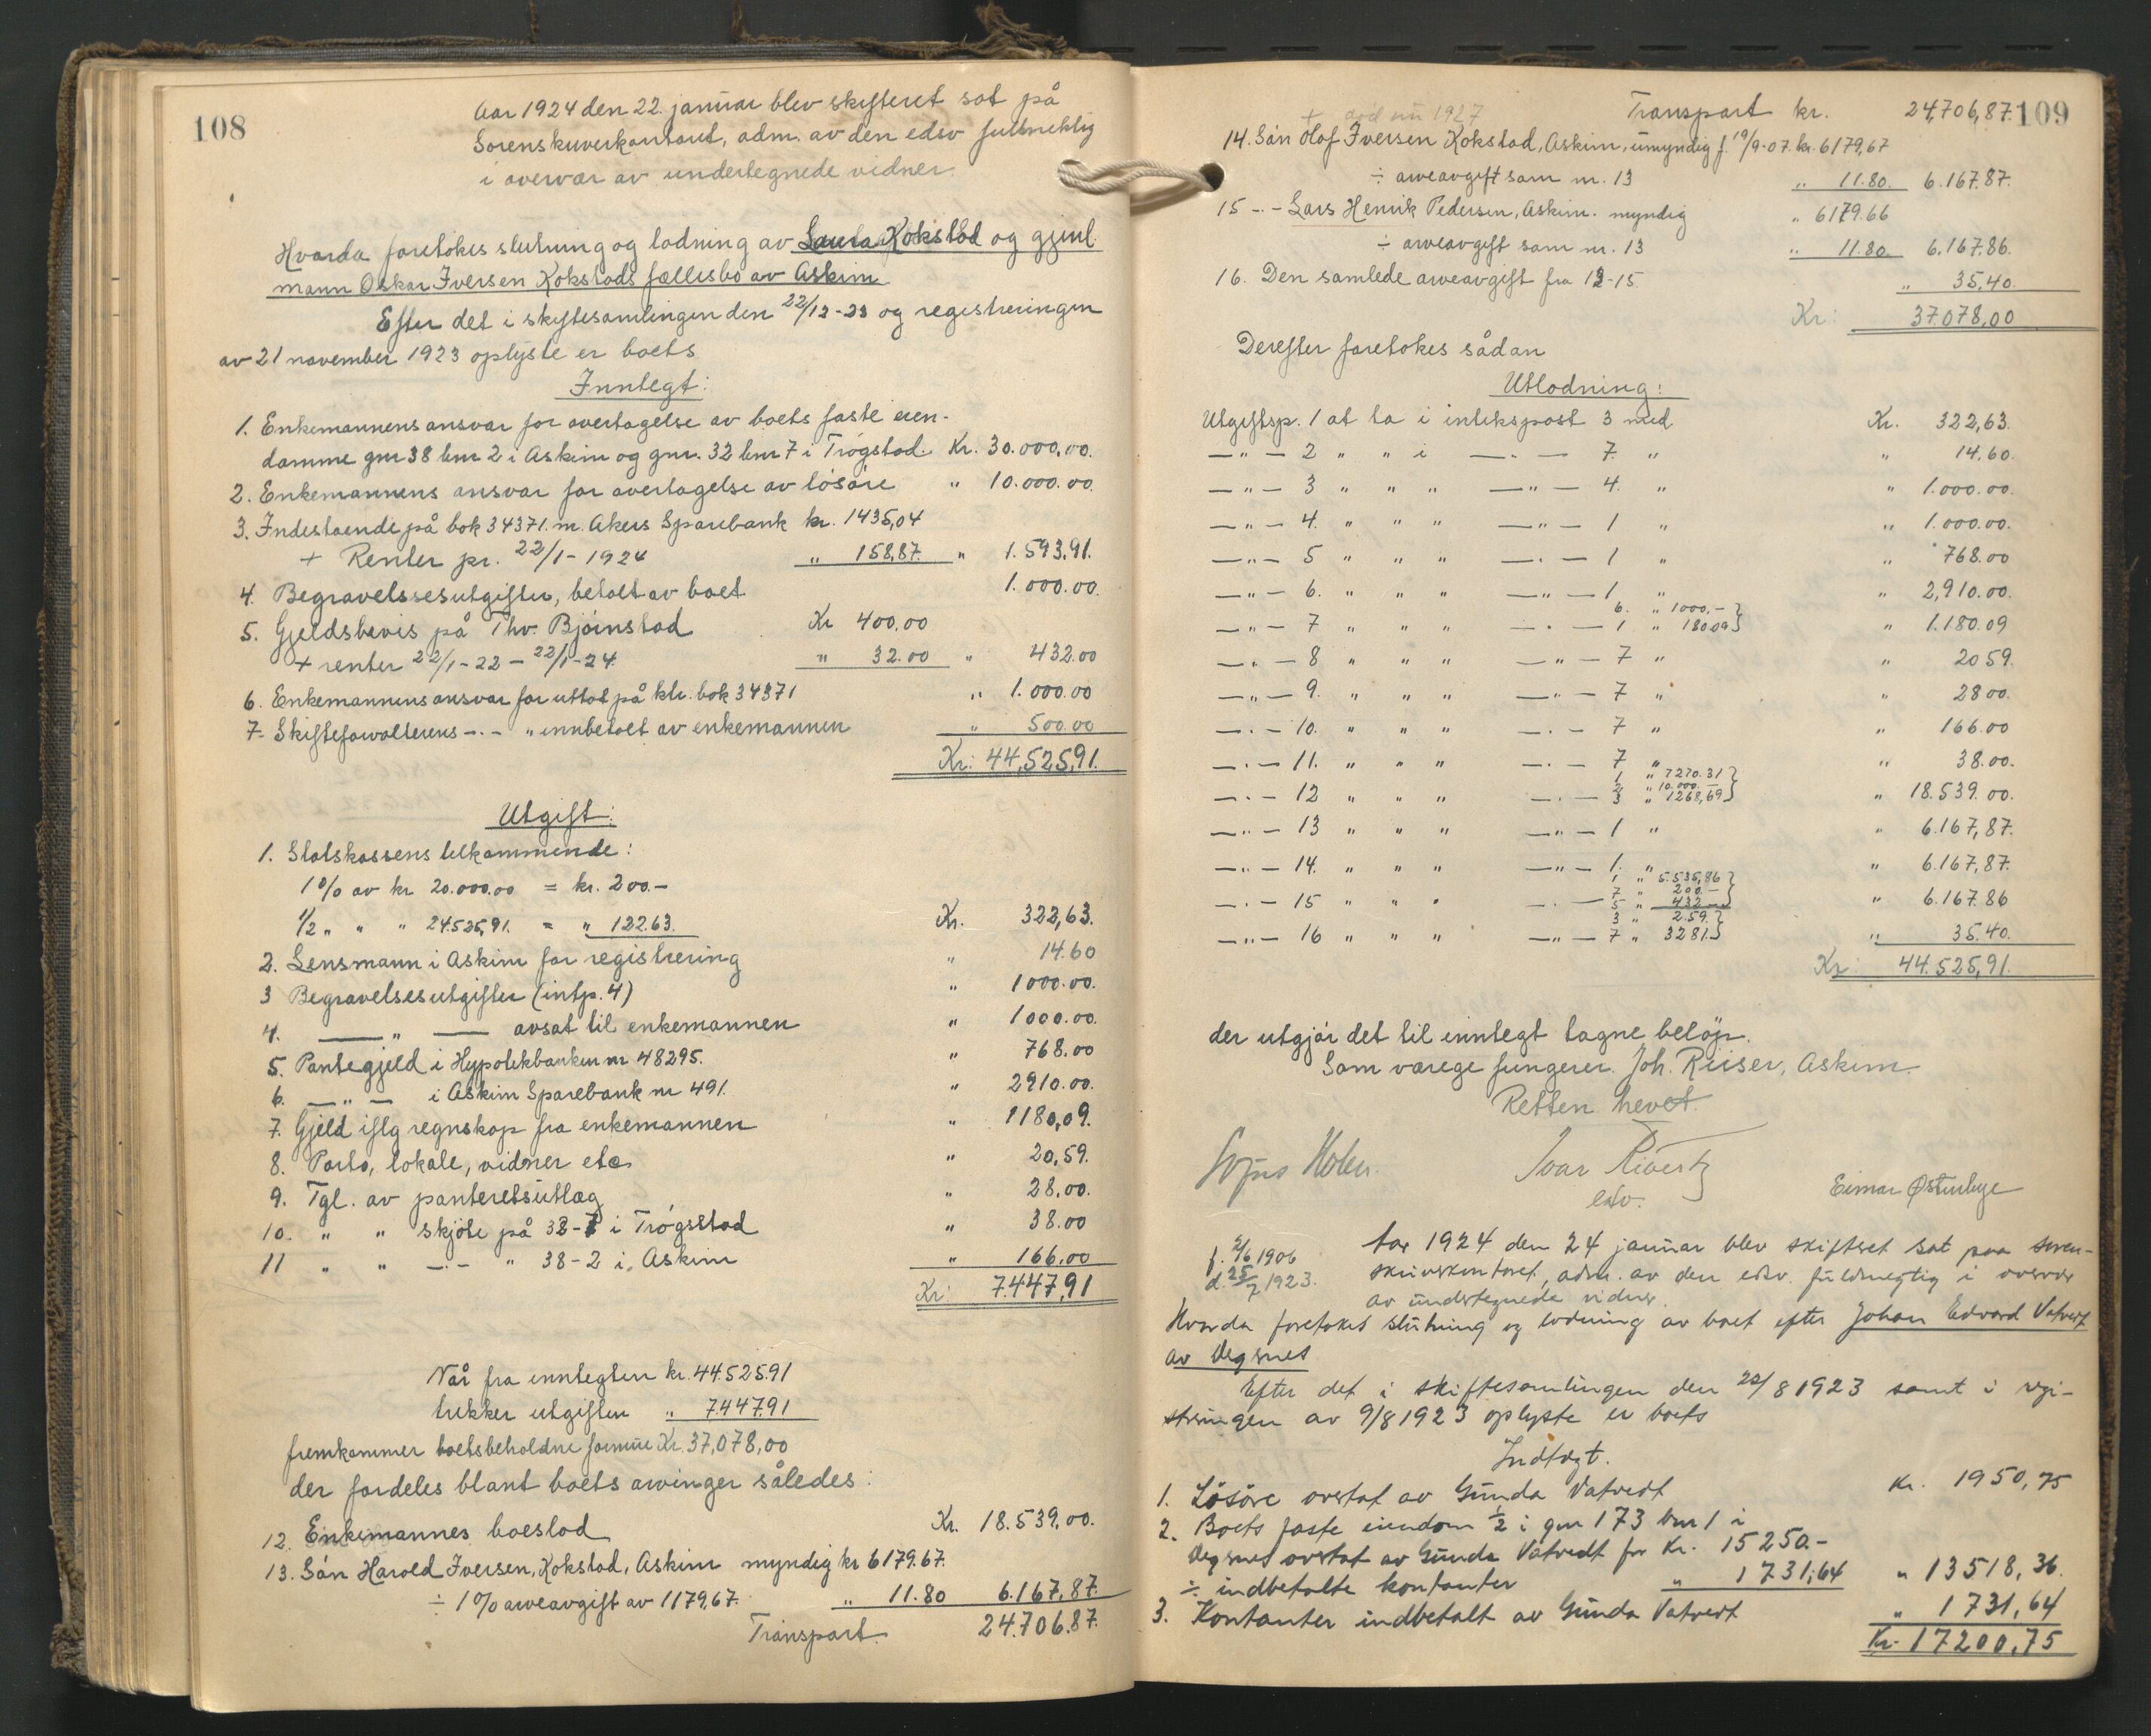 108
Aar 1924 den 22. januar blev skifteret sat på
Sorenskriverkontoret, adm. av den edsv fullmektig
i overvær av undertegnede vidner.
Hvorda foretokes slutning og lodning av Laura Kokstad og gjenl.
mann Oskar Iversen Kokstads fællesbo av Askim
Efter det i skiftesamlingen den 22/12-23 og registreringen
av 21 november 1923 oplyste er boets
Inntegt:
1. Enkemannens ansvar for overtagelse av boets faste eien-
domme gnr 38 bnr 2 i Askim og gnr. 32 bnr 7 i Trøgstad. Kr. 30.000,00.
2. Enkemannens ansvar for overtagelse av løsøre " 10.000.00
3. Indestaaende på bok 34371. m. Akers Sparebank kr. 1435,04
+ Renter pr. 22/1-1924 " 158,87. " 1.593,91.
4. Begravelsesutgifter, betalt av boet 1.000.00.
5. Gjeldsbevis på Thv. Bjørnstad Kr 400,00
+ renter 22/1-22 - 22/1-24. " 32.00 " 432.00
6. Enkemannens ansvar for uttat på ktr. bok 34371 " 1.000.00
7. Skifteforvalterens -"- " innbetalt av enkemannen " 500.00
Kr: 44,525,91.
Utgift:
1. Statskassens tilkommende:
1% av kr 20.000.00 = kr. 200.-
1/2 " " " 24.525,91. = " 122.63. Kr. 322,63.
2. Lensmann i Askim for registrering " 14.60
3 Begravelsesutgifter (intp. 4) " 1000.00.
4. — " — avsat til enkemannen " 1000.00.
5. Pantegjeld i Hypotekbanken nr 48295. " 768.00
6. — " — i Askim Sparebank nr 491. " 2910.00.
7. Gjeld iflg regnskap fra enkemannen " 1180,09.
8. Porto, lokale, vidner etc " 20,59.
9. Tgl. av panteretsutlæg " 28,00.
10. " " skjøte på 32-7 i Trøgstad " 38.00
11 " " -"- " 38-2 i Askim " 166,00
Kr: 7.447,91
Når fra inntegten kr. 44.525.91
trekker utgiften " 7.447.91
fremkommer boets beholdne formue Kr. 37,078,00
der fordeles blant boets arvinger således:
12. Enkemannes boeslod Kr. 18.539,00.
13. Søn Harold Iversen, Kokstad, Askim myndig kr 6179.67.
÷ 1% arveavgift av 1179,67. " 11.80 6.167,87.
Transport. 24.706.87.
109
Transport kr. 24,706,87.
+ død nu 1927
14. Søn Olaf Iversen Kokstad, Askim, umyndig f. 19/9-07. kr. 6179,67
÷ arveavgift som nr. 13 " 11.80. 6.167.87.
15 - " - Lars Henrik Pedersen, Askim. myndig " 6179.66
÷ arveavgift som nr. 13 " 11.80 6.167.86.
16. Den samlede arveavgift fra 13-15. " 35,40.
Kr: 37.078,00
Derefter foretokes sådan
Utlodning:
Utgiftsp. 1 at ta i intektspost 3 med Kr. 322,63.
— " — 2 " " i — " — 7. " " 14,60.
— " — 3 " " " — " — 4. " " 1.000.00.
— " — 4. " " " — " — 1 " " 1.000.00.
— " — 5 " " " — " — 1 " " 768.00
— " — 6. " " " — " — 1 " " 2,910.00.
— " — 7 " " " — " — 6. " 1000.-} 1 " 180.09} " 1.180.09
— " — 8 " " " — " — 7 " " 20 59.
— " — 9. " " " — " — 7 " " 28 00.
— " — 10. " " " — " — 7 " " 166.00
— " — 11. " " " — " — 7 " " 38.00.
— " — 12 " " " — " — 1 " 7270.31} 2 " 10.000.-} 3 " 1268,69} " 18.539.00.
— " — 13 " " " — " — 1 " " 6.167,87.
— " — 14. " " " — " — 1. " " 6.167,87.
— " — 15 " " " — " — 1 " 5.535,86} 7 " 200.-} 5 " 432.-} " 6.167.86
— " — 16 " " " — " — 3 " 2.59.} 7 " 32.81.} " 35.40.
Kr: 44.525,91.
der utgjør det til inntegt tagne beløp.
Som værege fungerer. Joh. Reiser, Askim.
Retten hevet.
Holen. Ivar Rivertz
edsv. Eimar Østenbye
f. 2/6 1906
d. 25/7 1923.
Aar 1924 den 24 januar blev skifteret sat paa soren-
skriverkontoret, adm. av den edsv. fuldmegtig i overvær
av undertegnede vidner.
Hvorda foretokes slutning og lodning av boet efter Johan Edvard Vatvedt
av Degernes
Efter det i skiftesamlingen den 22/8 1923 samt i regi-
streringen av 9/8 1923 oplyste er boets
Indtægt.
1. Løsøre overtat av Gunda Vatvedt Kr. 1950,75
2. Boets faste eiendom 1/2 i gnr 173 bnr 1 i
Degernes overtat av Gunda Vatvedt for Kr. 15250.-
÷ indbetalte kontanter " 1731,64 " 13518,36.
3. Kontanter indbetalt av Gunda Vatvedt " 1731,64
Kr. 17200,75